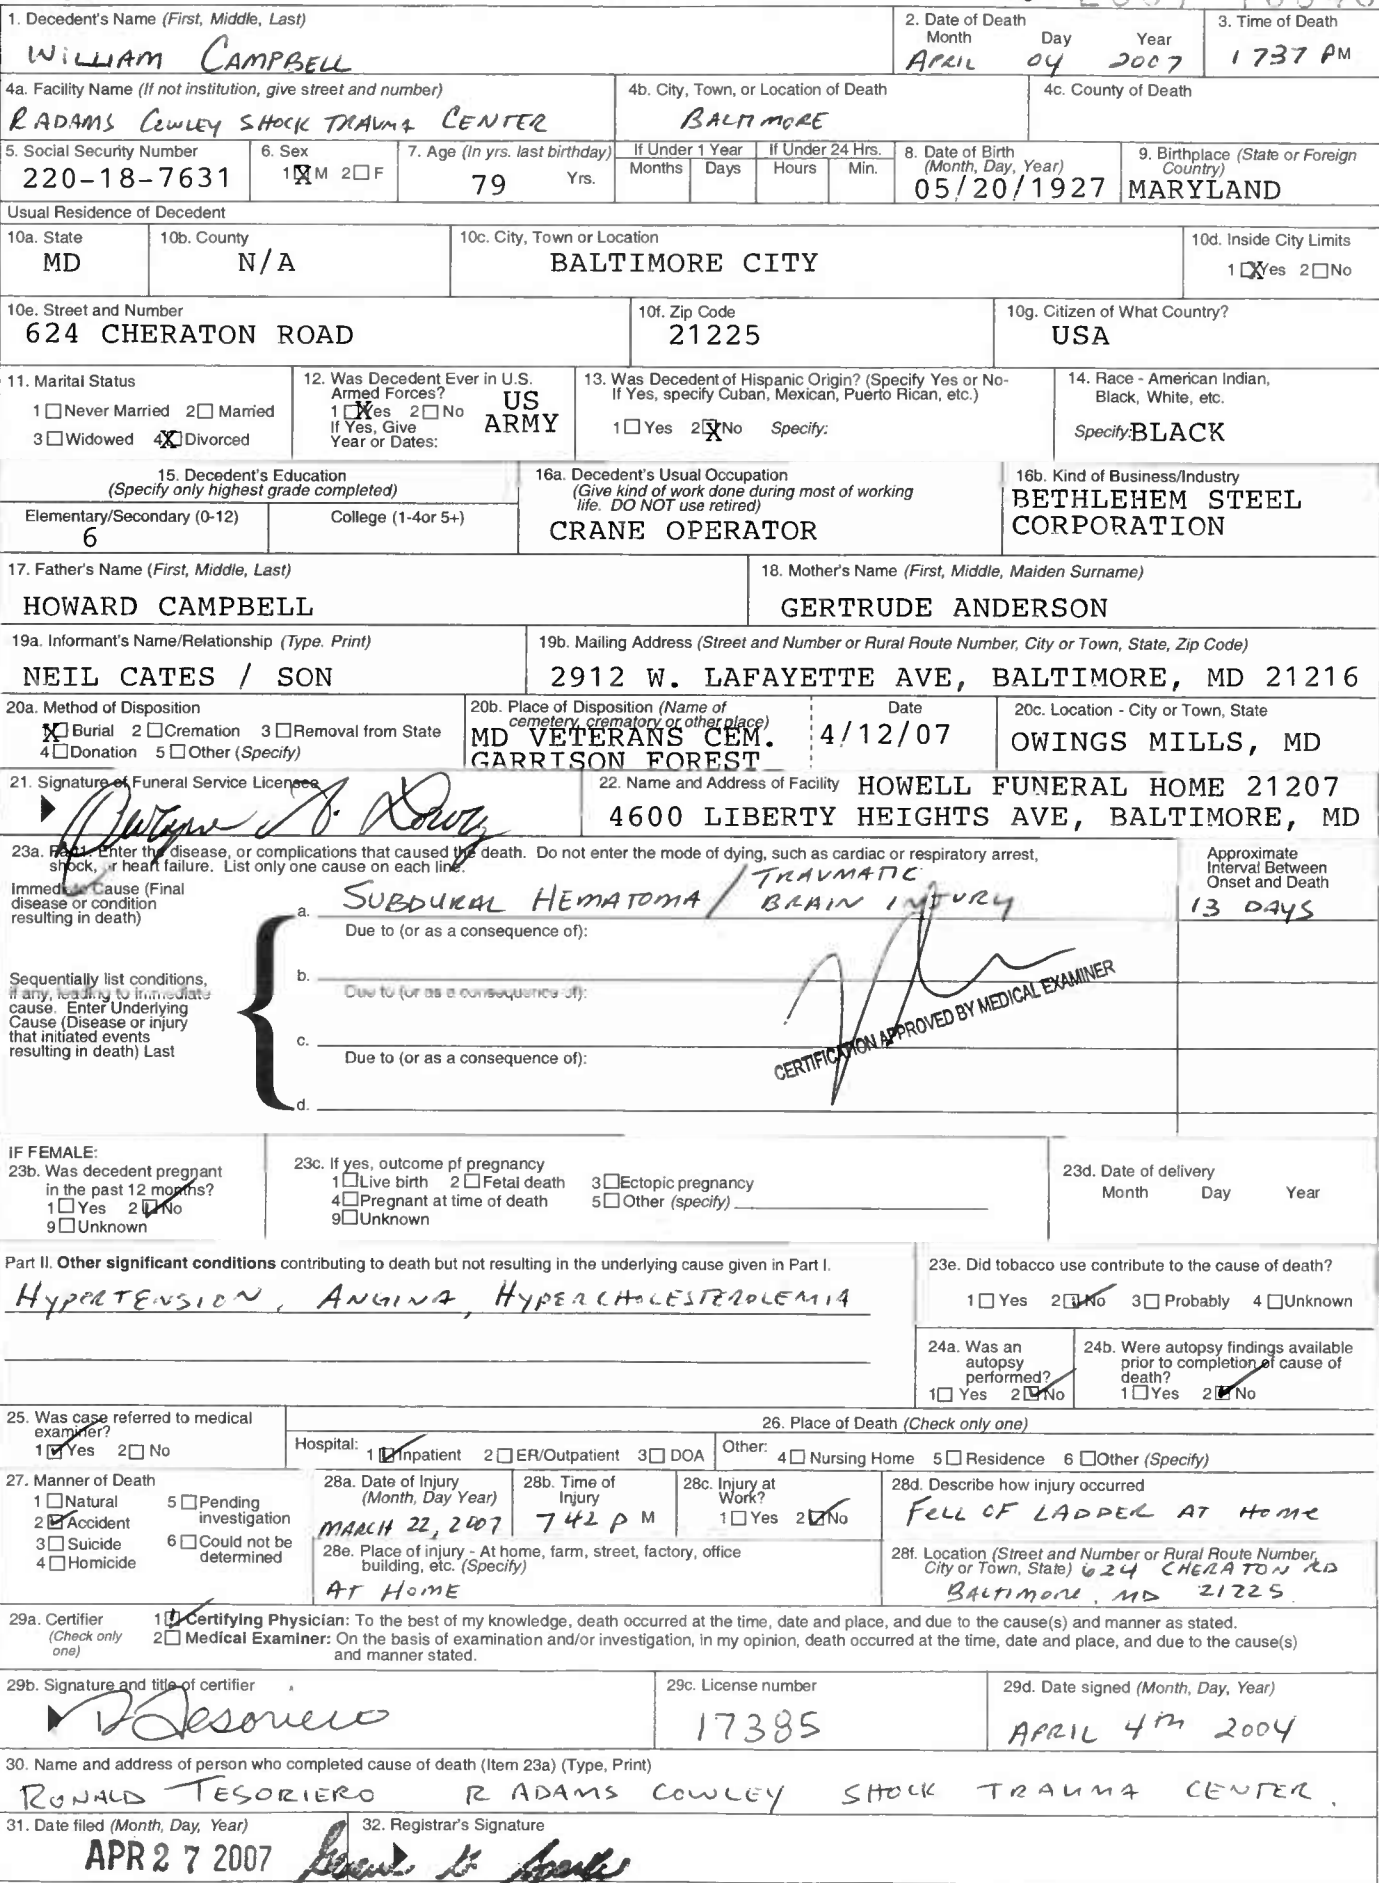 1. Decedent's Name (First, Middle, Last)
WILLIAM CAMPBELL
2. Date of Death
Month Day Year
APRIL 04 2007
3. Time of Death
1737 PM
4a. Facility Name (If not institution, give street and number)
R ADAMS COWLEY SHOCK TRAUMA CENTER
4b. City, Town, or Location of Death
BALTIMORE
4c. County of Death
5. Social Security Number
220-18-7631
6. Sex
1☒M 2☐F
7. Age (In yrs. last birthday)
79 Yrs.
If Under 1 Year
Months Days
If Under 24 Hrs.
Hours Min.
8. Date of Birth
(Month, Day, Year)
05/20/1927
9. Birthplace (State or Foreign
Country)
MARYLAND
Usual Residence of Decedent
10a. State
MD
10b. County
N/A
10c. City, Town or Location
BALTIMORE CITY
10d. Inside City Limits
1☒Yes 2☐No
10e. Street and Number
624 CHERATON ROAD
10f. Zip Code
21225
10g. Citizen of What Country?
USA
11. Marital Status
1☐Never Married 2☐Married
3☐Widowed 4☒Divorced
12. Was Decedent Ever in U.S.
Armed Forces?
1☒Yes 2☐No
If Yes, Give
Year or Dates:
US
ARMY
13. Was Decedent of Hispanic Origin? (Specify Yes or No-
If Yes, specify Cuban, Mexican, Puerto Rican, etc.)
1☐Yes 2☒No Specify:
14. Race - American Indian,
Black, White, etc.
Specify: BLACK
15. Decedent's Education
(Specify only highest grade completed)
Elementary/Secondary (0-12)
6
College (1-4or 5+)
16a. Decedent's Usual Occupation
(Give kind of work done during most of working
life. DO NOT use retired)
CRANE OPERATOR
16b. Kind of Business/Industry
BETHLEHEM STEEL
CORPORATION
17. Father's Name (First, Middle, Last)
HOWARD CAMPBELL
18. Mother's Name (First, Middle, Maiden Surname)
GERTRUDE ANDERSON
19a. Informant's Name/Relationship (Type. Print)
NEIL CATES / SON
19b. Mailing Address (Street and Number or Rural Route Number, City or Town, State, Zip Code)
2912 W. LAFAYETTE AVE, BALTIMORE, MD 21216
20a. Method of Disposition
☒Burial 2☐Cremation 3☐Removal from State
4☐Donation 5☐Other (Specify)
20b. Place of Disposition (Name of
cemetery, crematory or other place)
MD VETERANS CEM.
GARRISON FOREST
Date
4/12/07
20c. Location - City or Town, State
OWINGS MILLS, MD
21. Signature of Funeral Service Licensee
22. Name and Address of Facility HOWELL FUNERAL HOME 21207
4600 LIBERTY HEIGHTS AVE, BALTIMORE, MD
23a. Part I. Enter the disease, or complications that caused the death. Do not enter the mode of dying, such as cardiac or respiratory arrest,
shock, or heart failure. List only one cause on each line.
Approximate
Interval Between
Onset and Death
Immediate Cause (Final
disease or condition
resulting in death)
a. SUBDURAL HEMATOMA / TRAUMATIC
BRAIN INJURY
13 DAYS
Due to (or as a consequence of):
Sequentially list conditions,
if any, leading to immediate
cause. Enter Underlying
Cause (Disease or injury
that initiated events
resulting in death) Last
b.
Due to (or as a consequence of):
c.
Due to (or as a consequence of):
d.
CERTIFICATION APPROVED BY MEDICAL EXAMINER
IF FEMALE:
23b. Was decedent pregnant
in the past 12 months?
1☐Yes 2☑No
9☐Unknown
23c. If yes, outcome pf pregnancy
1☐Live birth 2☐Fetal death 3☐Ectopic pregnancy
4☐Pregnant at time of death 5☐Other (specify)
9☐Unknown
23d. Date of delivery
Month Day Year
Part II. Other significant conditions contributing to death but not resulting in the underlying cause given in Part I.
HYPERTENSION, ANGINA, HYPERCHOLESTEROLEMIA
23e. Did tobacco use contribute to the cause of death?
1☐Yes 2☑No 3☐Probably 4☐Unknown
24a. Was an
autopsy
performed?
1☐Yes 2☑No
24b. Were autopsy findings available
prior to completion of cause of
death?
1☐Yes 2☑No
25. Was case referred to medical
examiner?
1☑Yes 2☐No
26. Place of Death (Check only one)
Hospital: 1☑Inpatient 2☐ER/Outpatient 3☐DOA
Other: 4☐Nursing Home 5☐Residence 6☐Other (Specify)
27. Manner of Death
1☐Natural 5☐Pending
investigation
2☑Accident
3☐Suicide 6☐Could not be
determined
4☐Homicide
28a. Date of Injury
(Month, Day Year)
MARCH 22, 2007
28b. Time of
Injury
742 P M
28c. Injury at
Work?
1☐Yes 2☑No
28d. Describe how injury occurred
FELL OF LADDER AT HOME
28e. Place of injury - At home, farm, street, factory, office
building, etc. (Specify)
AT HOME
28f. Location (Street and Number or Rural Route Number,
City or Town, State) 624 CHERATON RD
BALTIMORE, MD 21225
29a. Certifier
(Check only
one)
1☑Certifying Physician: To the best of my knowledge, death occurred at the time, date and place, and due to the cause(s) and manner as stated.
2☐Medical Examiner: On the basis of examination and/or investigation, in my opinion, death occurred at the time, date and place, and due to the cause(s)
and manner stated.
29b. Signature and title of certifier
29c. License number
17385
29d. Date signed (Month, Day, Year)
APRIL 4TH 2004
30. Name and address of person who completed cause of death (Item 23a) (Type, Print)
RONALD TESORIERO R ADAMS COWLEY SHOCK TRAUMA CENTER.
31. Date filed (Month, Day, Year)
APR 27 2007
32. Registrar's Signature